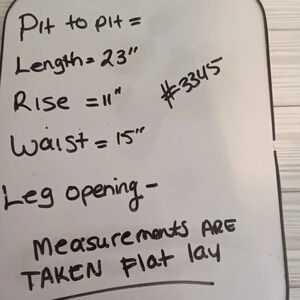 Pit to pit =
Length = 23"
Rise = 11"
#3345
Waist = 15"
Leg opening -
Measurements ARE
TAKEN Flat lay